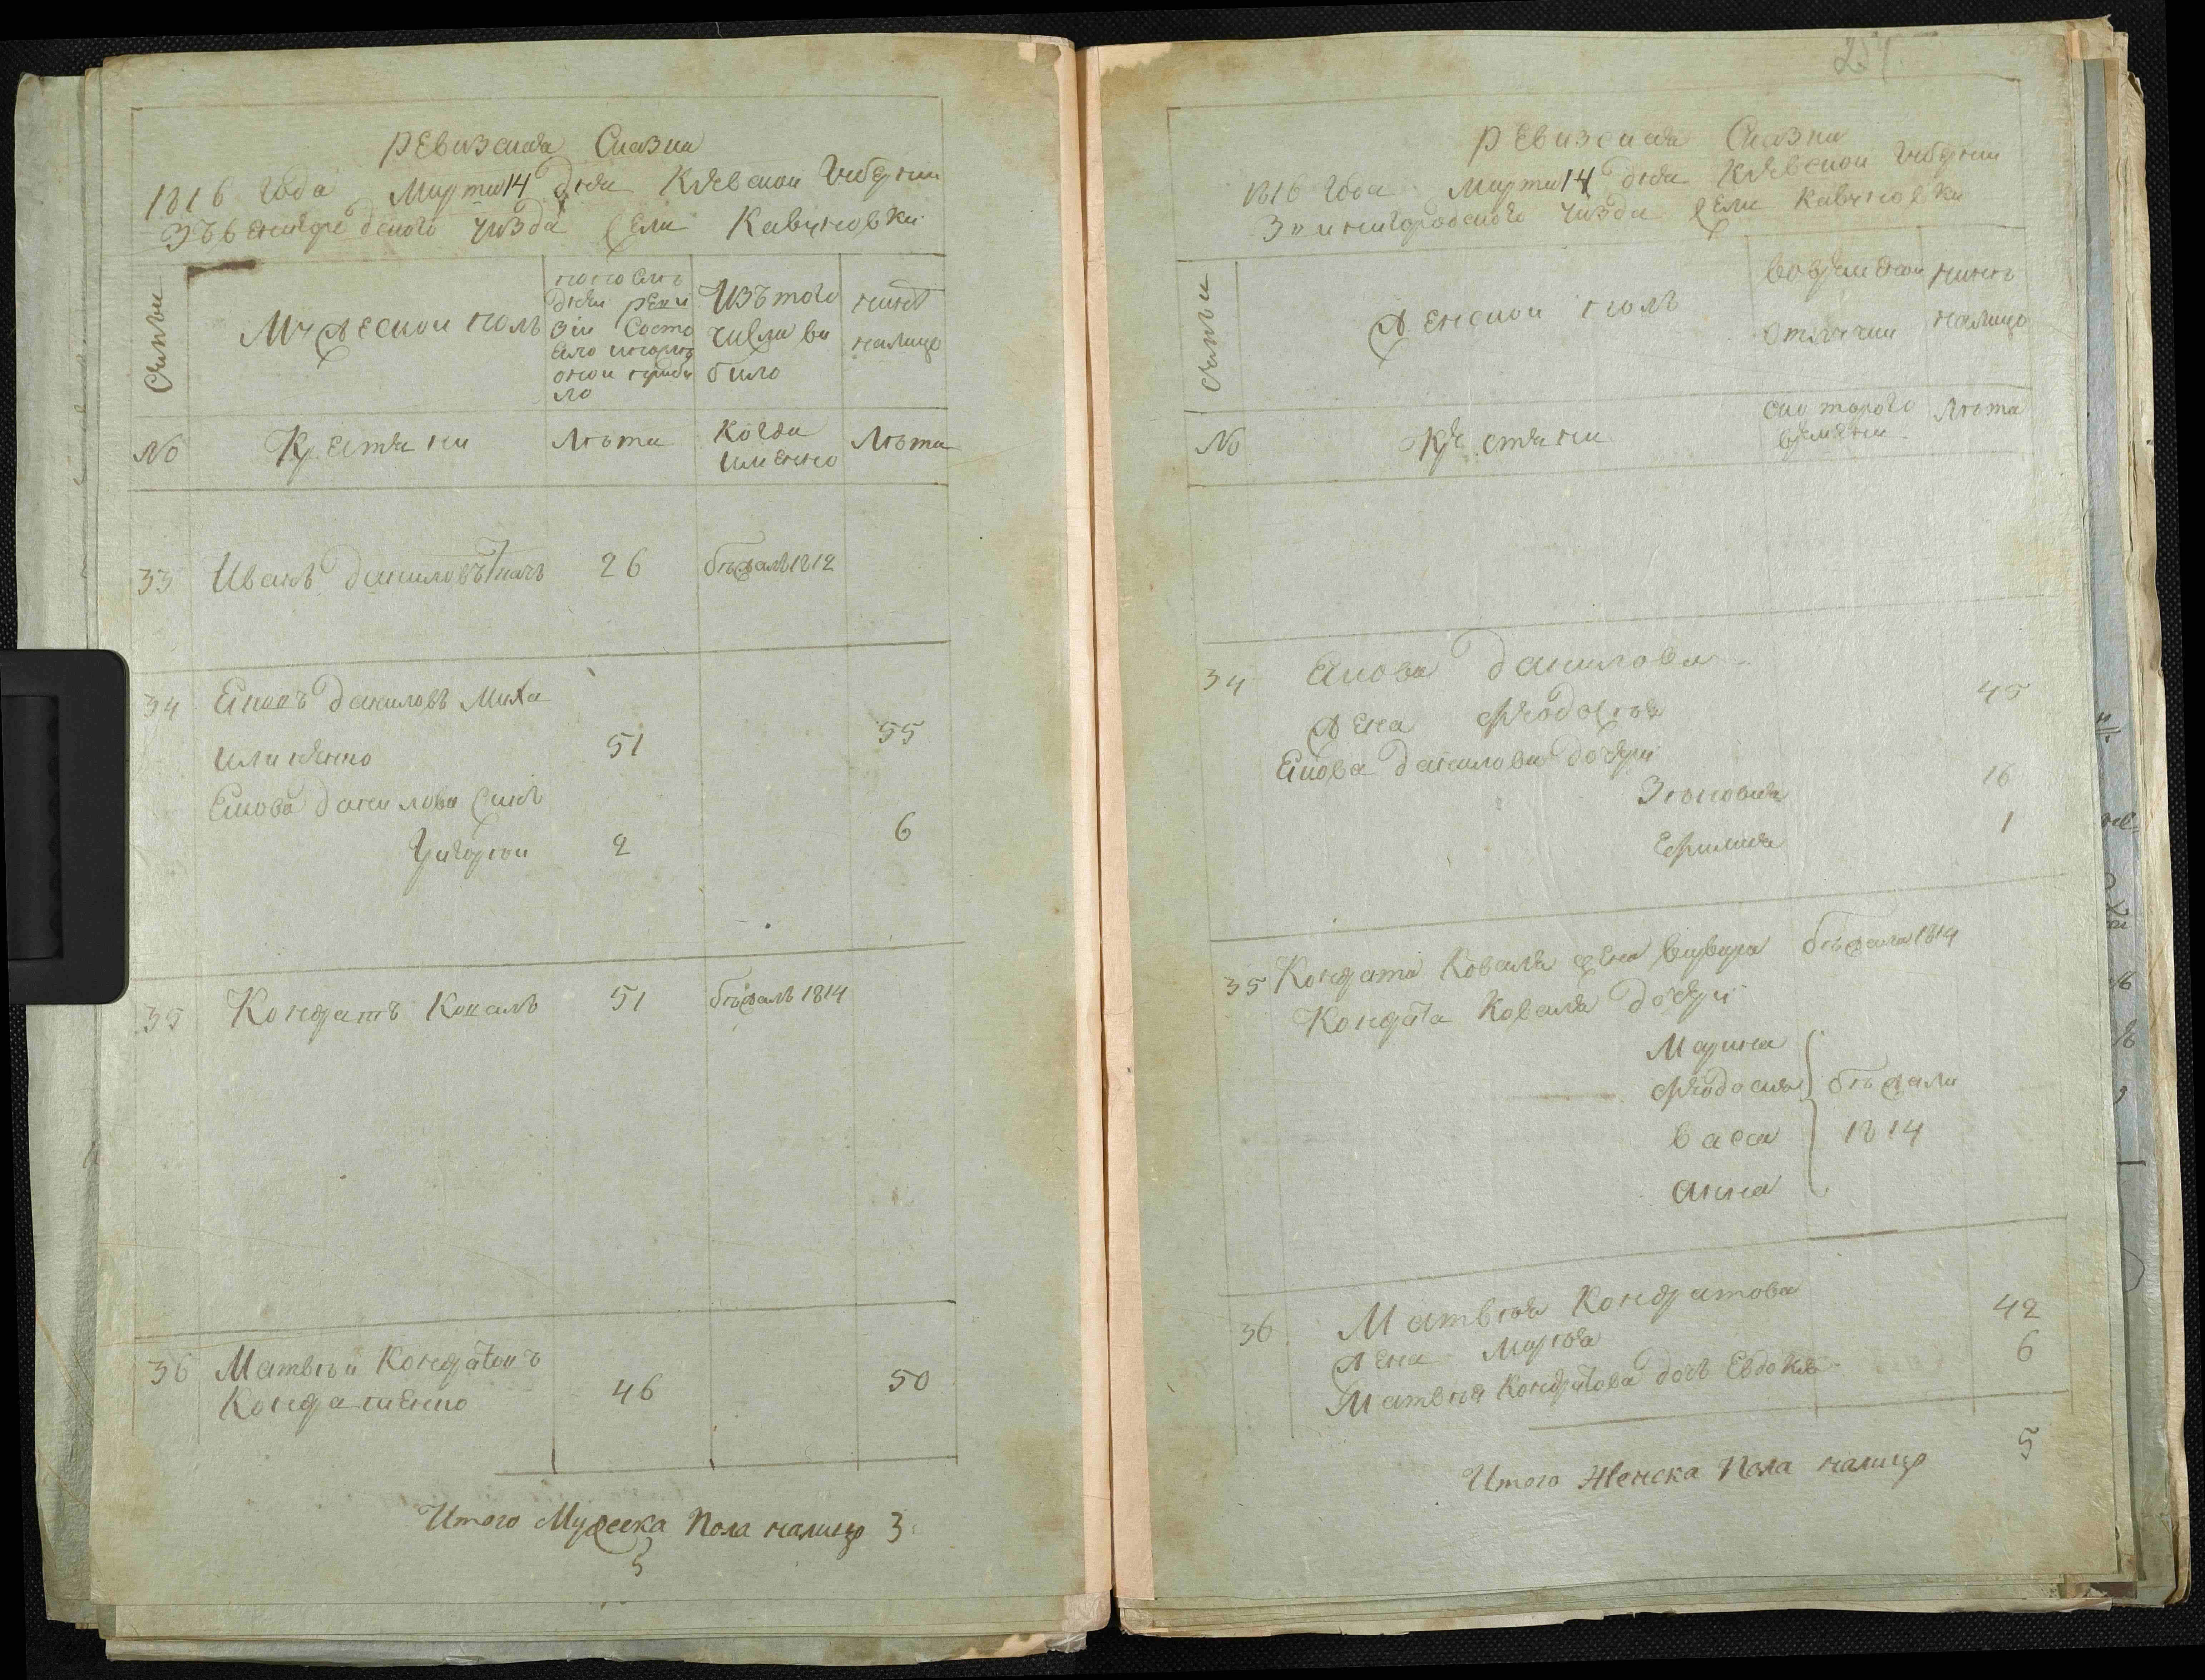 ревизская Сказка
1816 года Марта 14 дня Киевской Губернии
уезда Села Кавуновки
Семьи
Мужеской полъ
Изъ того
числа вы
было
ныне
налицо
№
Крестяни
Лѣта
Когда
именно
Лѣта
33 Иванъ Даниловъ Ткачъ 26 бѣжалъ 1812
34 Даниловъ Миха
51 55
Данилова Синъ
Григорій 2 6
35 Кондратъ Ковалъ 51 бѣжалъ 1814
36 Матвѣй Кондратовъ
Кондратенко 46 50
Итого Мужеска Пола налицо 3
3
257
ревизская Сказка
1816 года Марта 14 дня Киевской Губернии
Звинигородского уизда Села Кавуновки
Семьи
Женской полъ
Во временной
отлучки
нинѣ
налицо
№
Крестяни
с которого
времени
Лѣта
34 Якова Данилова
Жена Феодосія 45
Якова Данилова дочери
Зѣновия 16
1
35 Кондрата Коваля жена Варвара бѣжала 1814
Кондрата Коваля дочери
Марина
Феодосия бѣжали
Васса 1814
Анна
36 Матвѣя Кондратова
Жена Марѣя 42
Матвѣя Кондратова дочъ Евдокия 6
Итого Женска Пола налицо 5